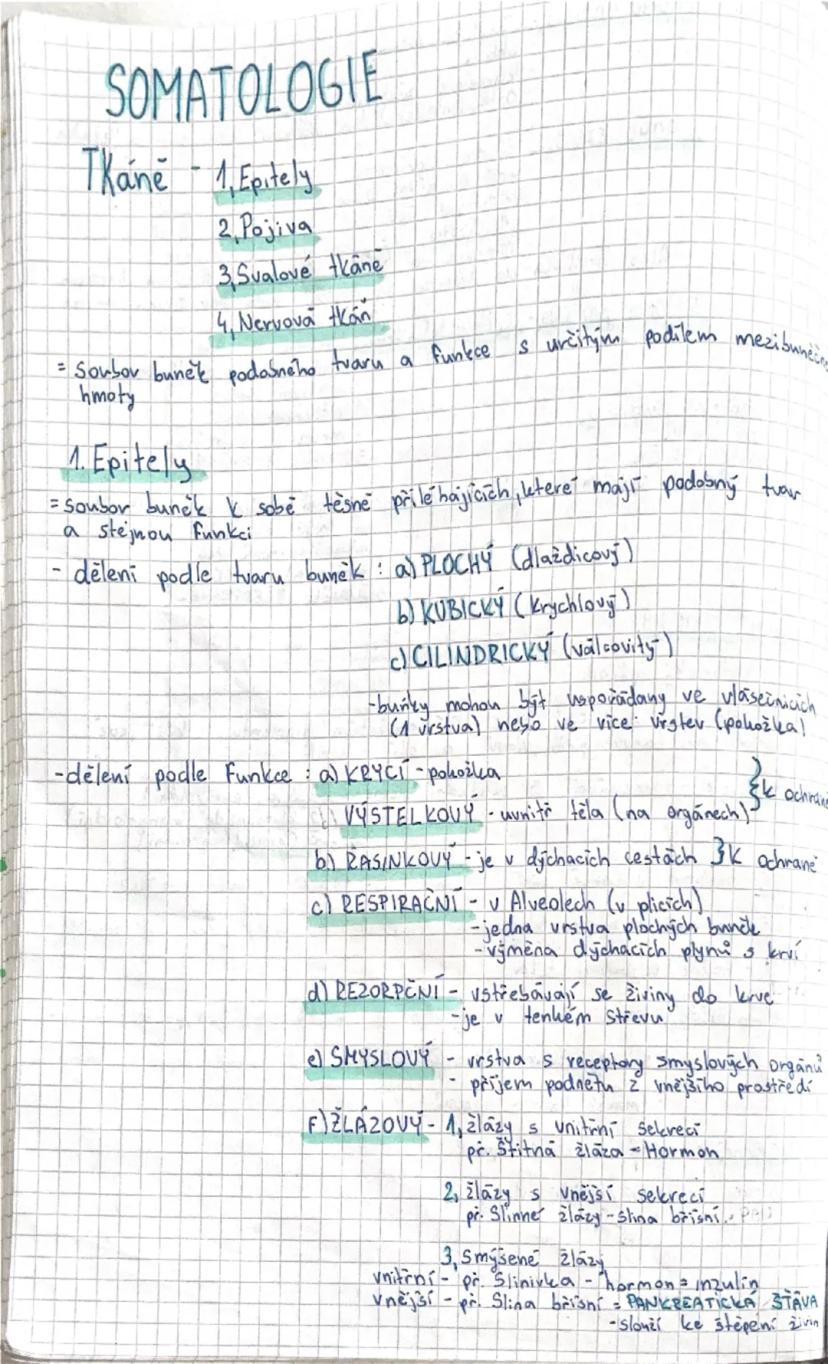 SOMATOLOGIE
Tkáně - 1, Epitely
2, Pojiva
3, Svalové tkáně
4, Nervová tkáň
= Soubor buněk podobného tvaru a funkce s určitým podílem mezibuněčné
hmoty
1. Epitely
= soubor buněk k sobě těsně přiléhajících, které mají podobný tvar
a stejnou funkci
- dělení podle tvaru buněk : a) PLOCHÝ (dlaždicový)
b) KUBICKÝ (Krychlový)
c) CILINDRICKÝ (válcovitý)
- buňky mohou být uspořádany ve vlásečnicích
(1 vrstva) nebo ve více vrstev (pokožka)
- dělení podle Funkce : a) KRYCÍ - pokožka
VÝSTELKOVÝ - uvnitř těla (na orgánech) } k ochraně
b) ŘASINKOVÝ - je v dýchacích cestách } K ochraně
c) RESPIRAČNÍ - v Alveolech (v plicích)
- jedna vrstva plochých buněk
- výměna dýchacích plynů s krví
d) REZORPČNÍ - vstřebávají se živiny do krve
- je v tenkém střevu
e) SMYSLOVÝ - vrstva s receptory smyslových orgánů
- příjem podnětu z vnějšího prostředí
F) ŽLÁZOVÝ - 1, žlázy s vnitřní sekrecí
př. Štítná žláza - Hormon
2, žlázy s vnější sekrecí
př. Slinné žlázy - slina břišní
3, Smýšené žlázy
vnitřní - př. Slinivka - hormon = inzulín
vnější - př. Slina břišní = PANKREATICKÁ ŠŤÁVA
- slouží ke štěpení živin